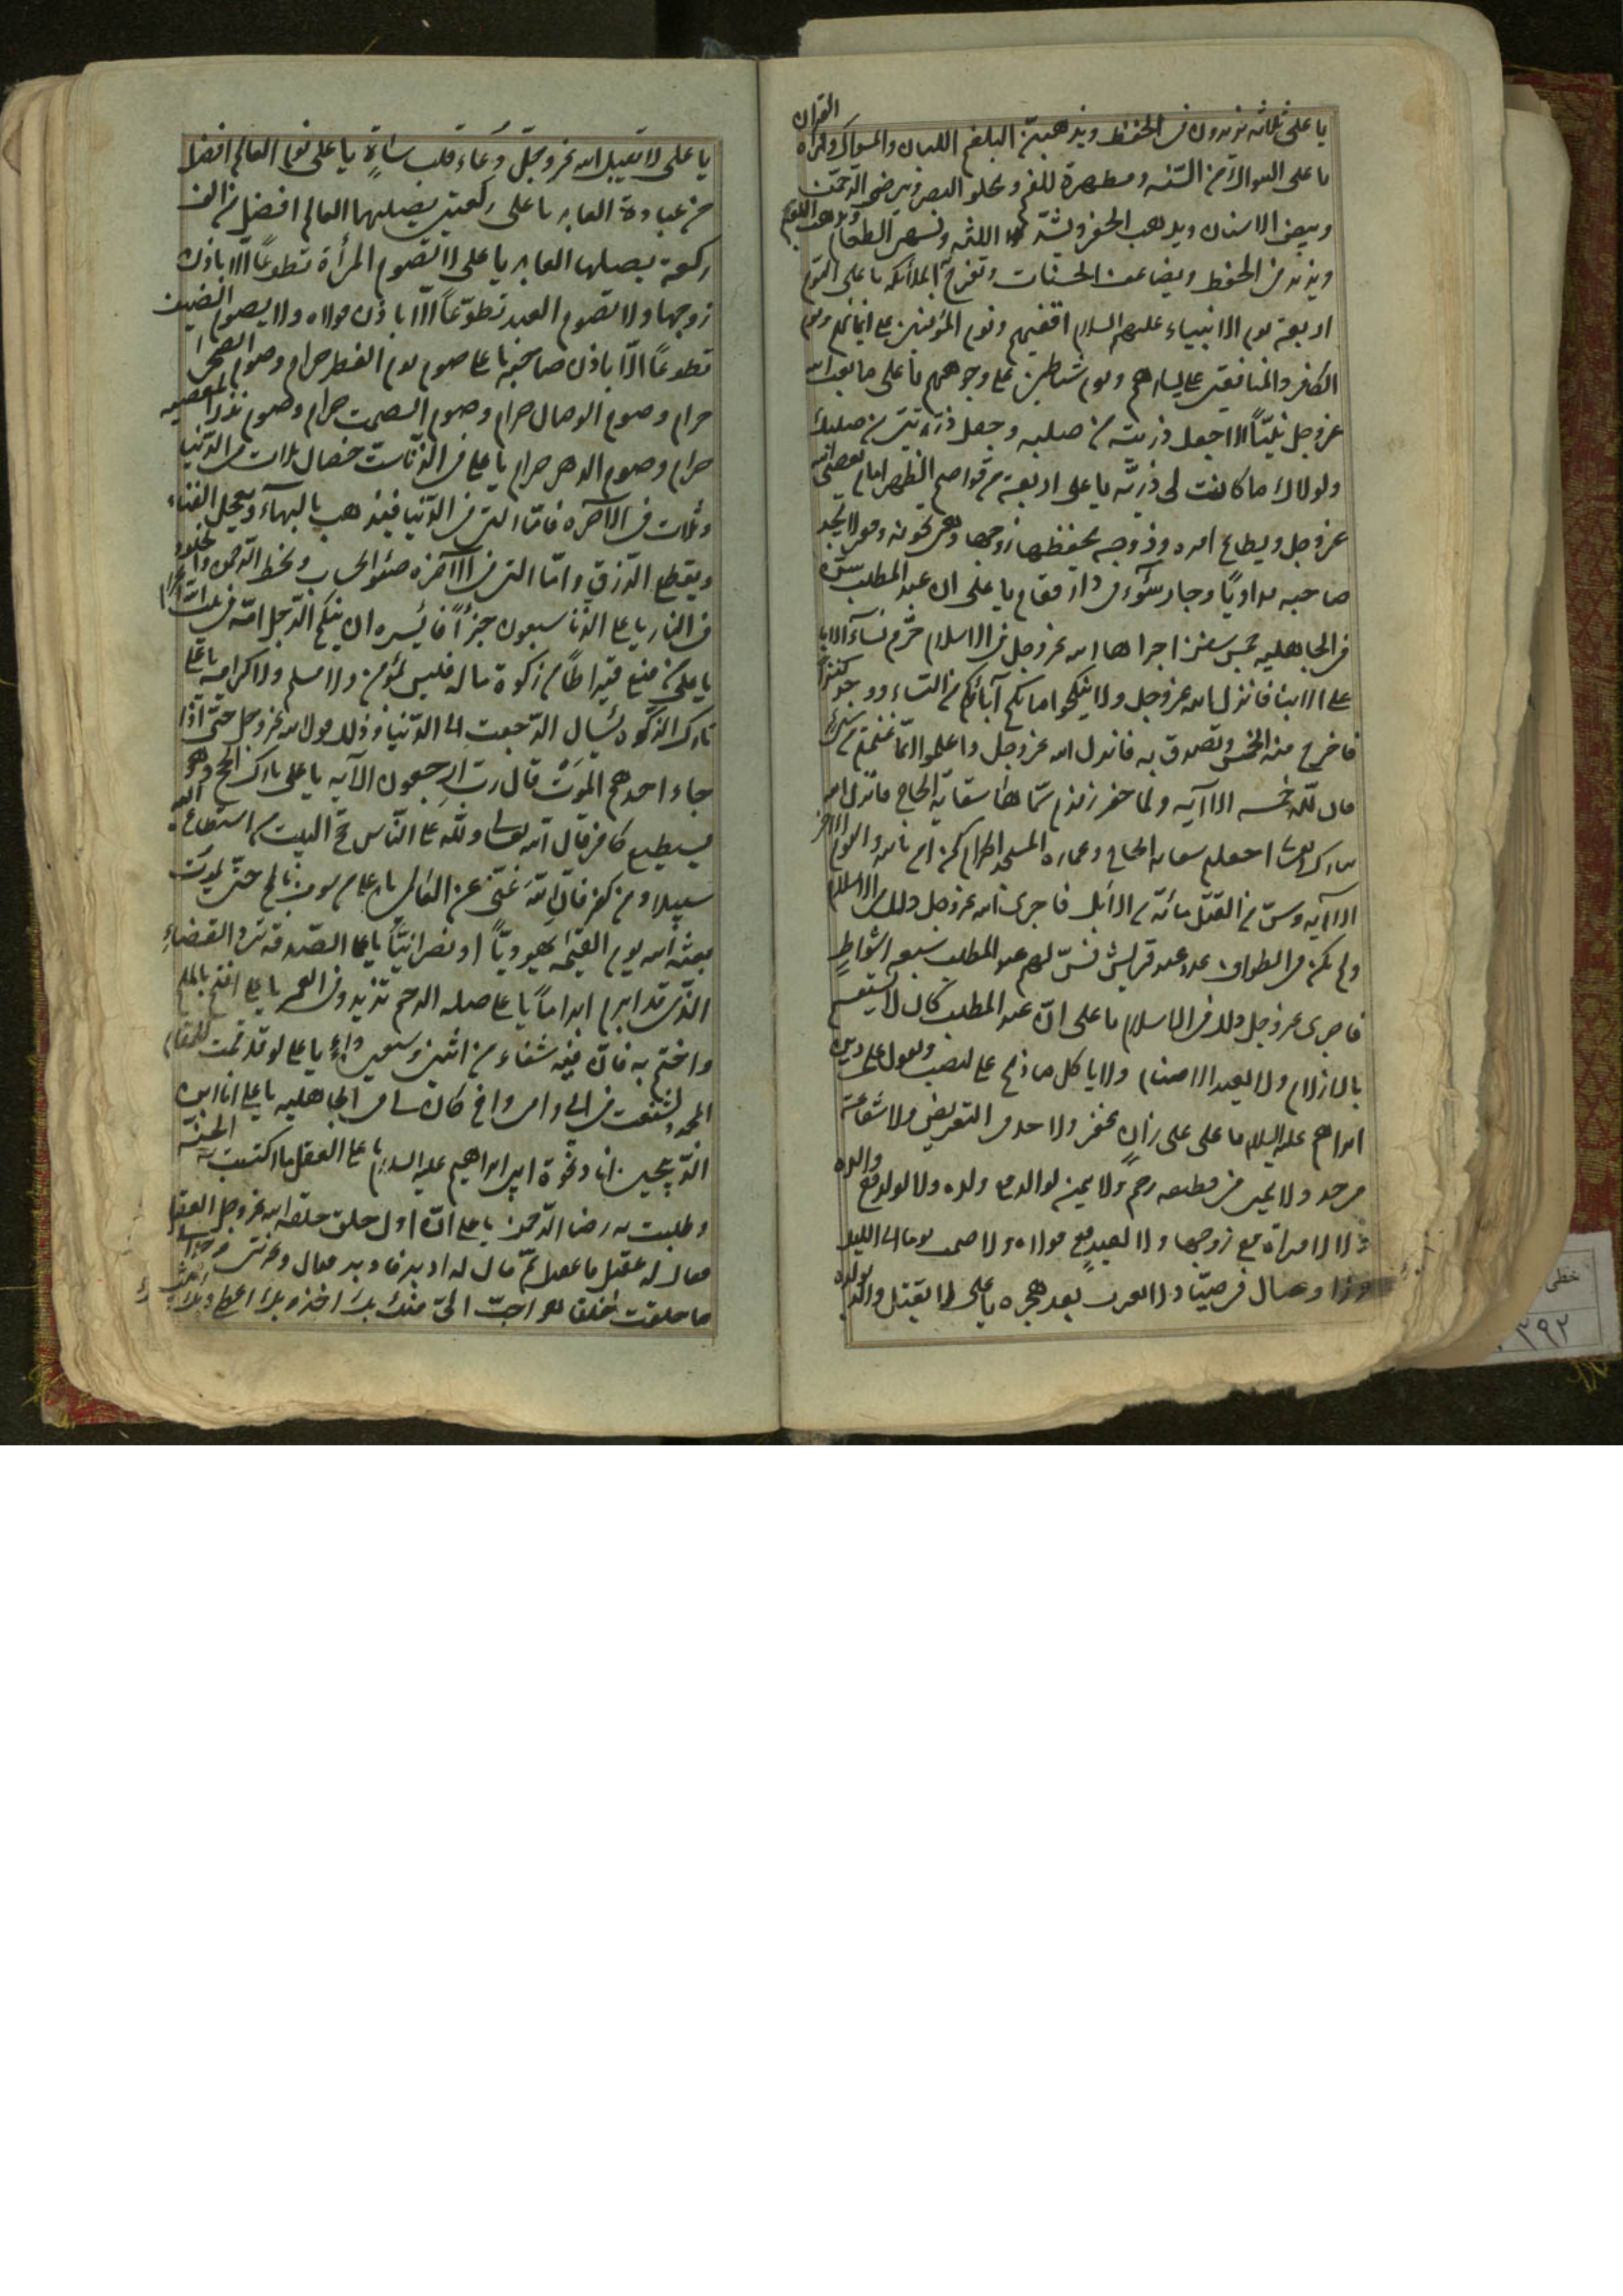 يا على ثلاثه يزيدون فى الحفظ ويذهبن البلغم اللبان والمسواك وقرأة القران
يا على السواك من السنه ومطهرة للفم ويجلو البصر ويرضى الرحمن
ويبيض الاسنان ويذهب الحفر ويشد اللثه ويشهى الطعام ويذهب البلغم
ويزيد فى الحفظ ويضاعف الحسنات وتفرح به الملائكه يا على النوم
اربعة نوم الانبياء عليهم السلام اقفيتهم ونوم المؤمنين على ايمانهم ونوم
الكافر والمنافقين على يسارهم ونوم شياطين على وجوههم يا على ما بعث الله
عزوجل نبيّاً الا جعل ذريته من صلبه وجعل ذريتى من صلبك
ولولاك ما كانت لى ذريّه يا على اربعة من قواصم الظهر امام يعصى الله
عزوجل ويطاع امره وزوجه يحفظها زوجها وهى تخونه وفقر لا يجد
صاحبه مداويًا وجار سوء فى دار مقام يا على ان عبد المطلب سنّ
فى الجاهليه خمس سنن اجراها الله عزوجل فى الاسلام حرّم نسآء الابا
على الابناء فانزل الله عزوجل ولا تنكحوا ما نكح آبائكم من النساء ووجد كنزاً
فاخرج منه الخمس وتصدق به فانزل الله عزوجل واعلموا انّما غنمتم من شئ
فان للّه خمسه الاآيه ولما حفر زمزم سمّاها سقاية الحاج فانزل الله
تبارك وتعالى اجعلتم سقايه الحاج وعماره المسجد الحرام كمن امن بالله واليوم الاخر
الاآيه وسنّ فى القتل مائة من الابل فاجرى الله عزوجل ذلك فى الاسلام
ولم يكن فى الطواف عدد عند قريش فسنّ لهم عبد المطلب سبعه اشواطٍ
فاجرى عزوجل ذلك فى الاسلام يا على انّ عبد المطلب كان لا يستقسم
بالازلام ولا يعبد الاصنام ولا ياكل ما ذبح على النصب ويقول على دين
ابراهيم عليه السلام
فى حد ولا يمين فى قطيعه رحم ولا يمين لوالد مع ولده ولا لولد مع والده
ولا لامراة مع زوجها ولا لعبد مع مولاه ولا صمت يوما الى الليل
ولا وصال فى صيام ولا تعرب بعد هجره يا على لا يقتل والد بولده
يا على لا يقبل الله عزوجلّ دعاء قلب ساهٍ يا على نوم العالم افضل
من عبادة العابد يا على ركعتين يصليهما العالم افضل من الف
ركعة يصليها العابد يا على لا تصوم المرأة تطوعًا الا باذن
زوجها ولا تصوم العبد تطوّعًا الّا باذن مولاه ولا يصوم الضيف
تطوعًا الّا باذن صاحبه يا على صوم يوم الفطر حرام وصوم الضحى
حرام وصوم الوصال حرام وصوم الصمت حرام وصوم نذر المعصيه
حرام وصوم الدهر حرام يا على فى الزنا ست خصال ثلاث فى الدّنيا
وثلاث فى الآخره فامّا التى فى الدّنيا فيذهب بالبهآء ويعجل الفناء
ويقطع الرزق وامّا التى فى الاآخره فسوء الحساب وسخط الرحمن والخلود
فى النار يا على الربا سبعون جزأً فايسره ان ينكح الرجل امّه فى بيت الله الحرام
يا على من منع قيراطًا من زكوة ماله فليس بمؤمن ولا مسلم ولا كرامه يا على
تارك الزكوة يسأل الرّجعت الى الدّنيا وذلك قول الله عزوجل حتى اذا
جاء احدهم الموت قال رب ارجعون الآيه يا على تارك الحج وهو
يستطيع كافر قال الله تعالى وللّه على النّاس حج البيت من استطاع اليه
سبيلا ومن كفر فان الله غنىّ عن العالمين يا على من سوف بالحج حتّى يموت
بعثه الله يوم القيمه يهوديّاً او نصرانيّاً يا على الصّدقه ترد القضاء
الذى قد ابرم ابراماً يا على صله الرحم تزيد فى العمر يا على افتتح بالملح
واختم به فانّ فيه شفاء من اثنين وسبعين داءٍ يا على لو قد قمت المقام
المحمود لشفعت فى ابى وامى واخ كان لى فى الجاهليه يا على انا ابن
الذبيحين انا دعوة ابى ابراهيم عليه السلام يا على العقل ما اكتسبت به الجنّة
وطلبت به رضا الرّحمن يا على انّ اول خلق خلقه الله عزوجل العقل
فقال له اقبل فاقبل ثمّ قال له ادبر فادبر فقال وعزتى وجلالى
ما خلقت خلقا هو احبّ الىّ منك بك اخذ وبك اعطى وبك